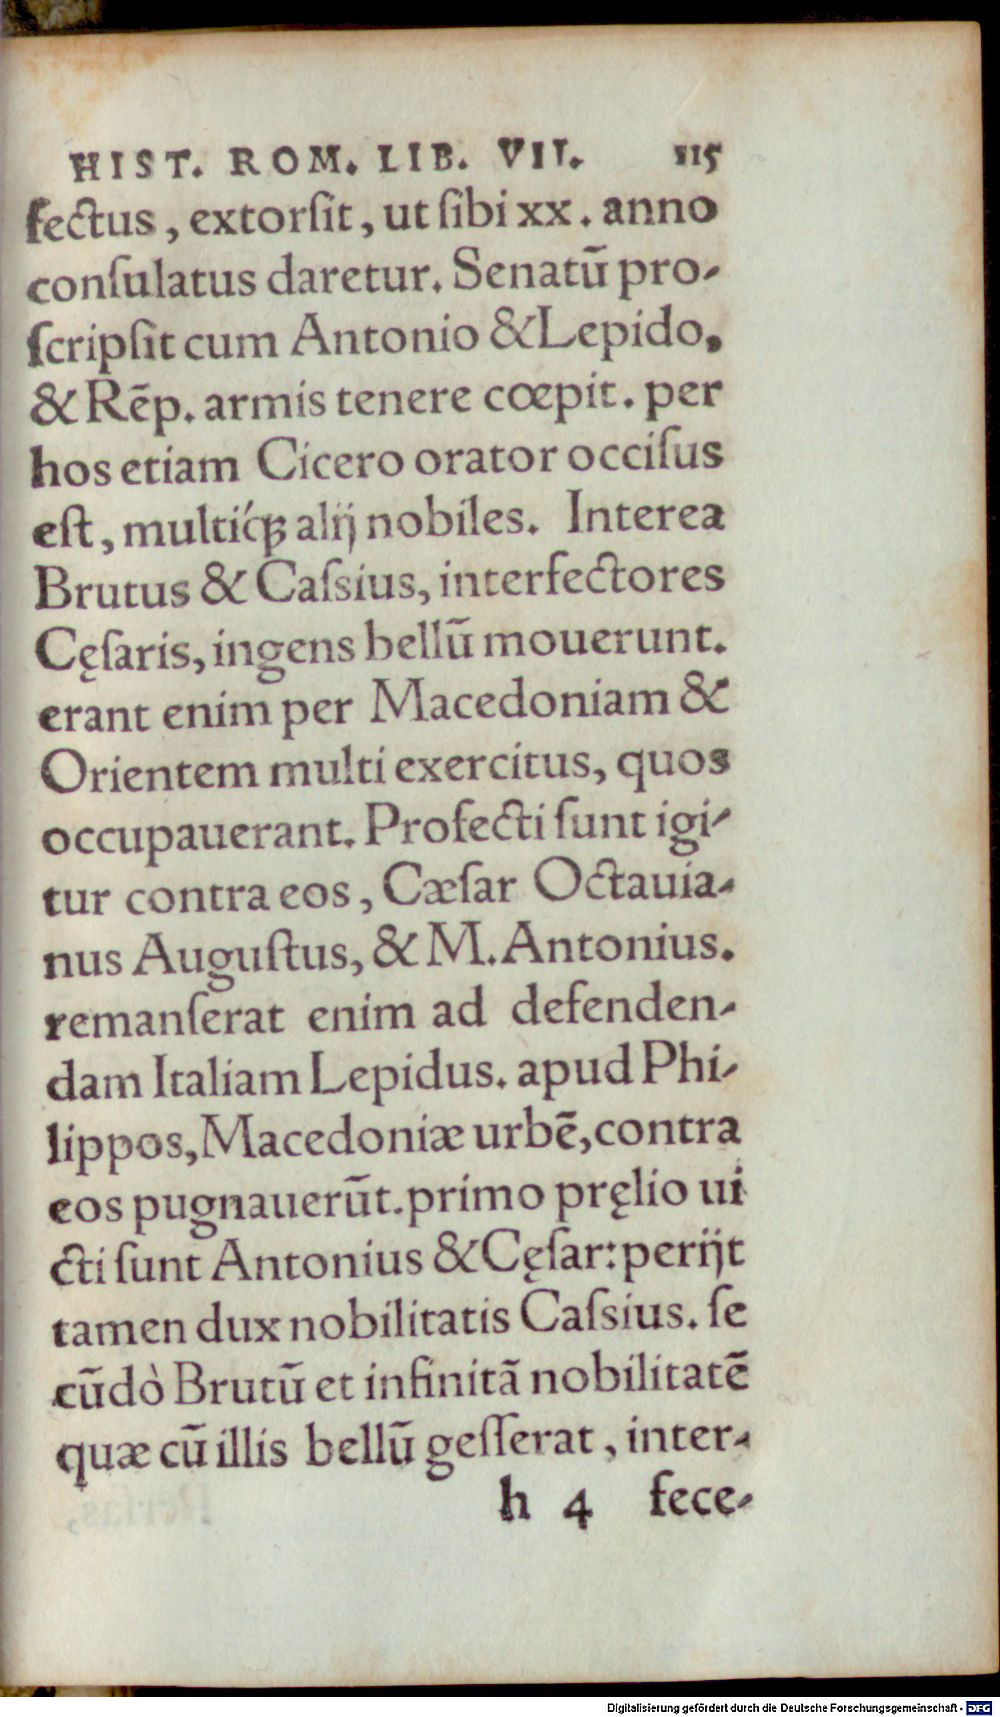 HIST. ROM. LIB. VII. 115
fectus, extorſit, ut ſibi xx. anno
conſulatus daretur. Senatũ pro-
ſcripſit cum Antonio & Lepido,
& Rẽp. armis tenere cœpit. per
hos etiam Cicero orator occiſus
eſt, multíq́ꝫ alij nobiles. Interea
Brutus & Caſsius, interfectores
Cęſaris, ingens bellũ mouerunt.
erant enim per Macedoniam &
Orientem multi exercitus, quos
occupauerant. Profecti ſunt igi-
tur contra eos, Cæſar Octauia-
nus Auguſtus, & M. Antonius.
remanſerat enim ad defenden-
dam Italiam Lepidus. apud Phi-
lippos, Macedoniæ urbẽ, contra
eos pugnauerũt. primo pręlio ui
cti ſunt Antonius & Cęſar: perijt
tamen dux nobilitatis Caſsius. ſe
cũdò Brutũ et infinitã nobilitatẽ
quæ cũ illis bellũ geſſerat, inter-
h 4 fece-
Digitalisierung gefördert durch die Deutsche Forschungsgemeinschaft - DFG